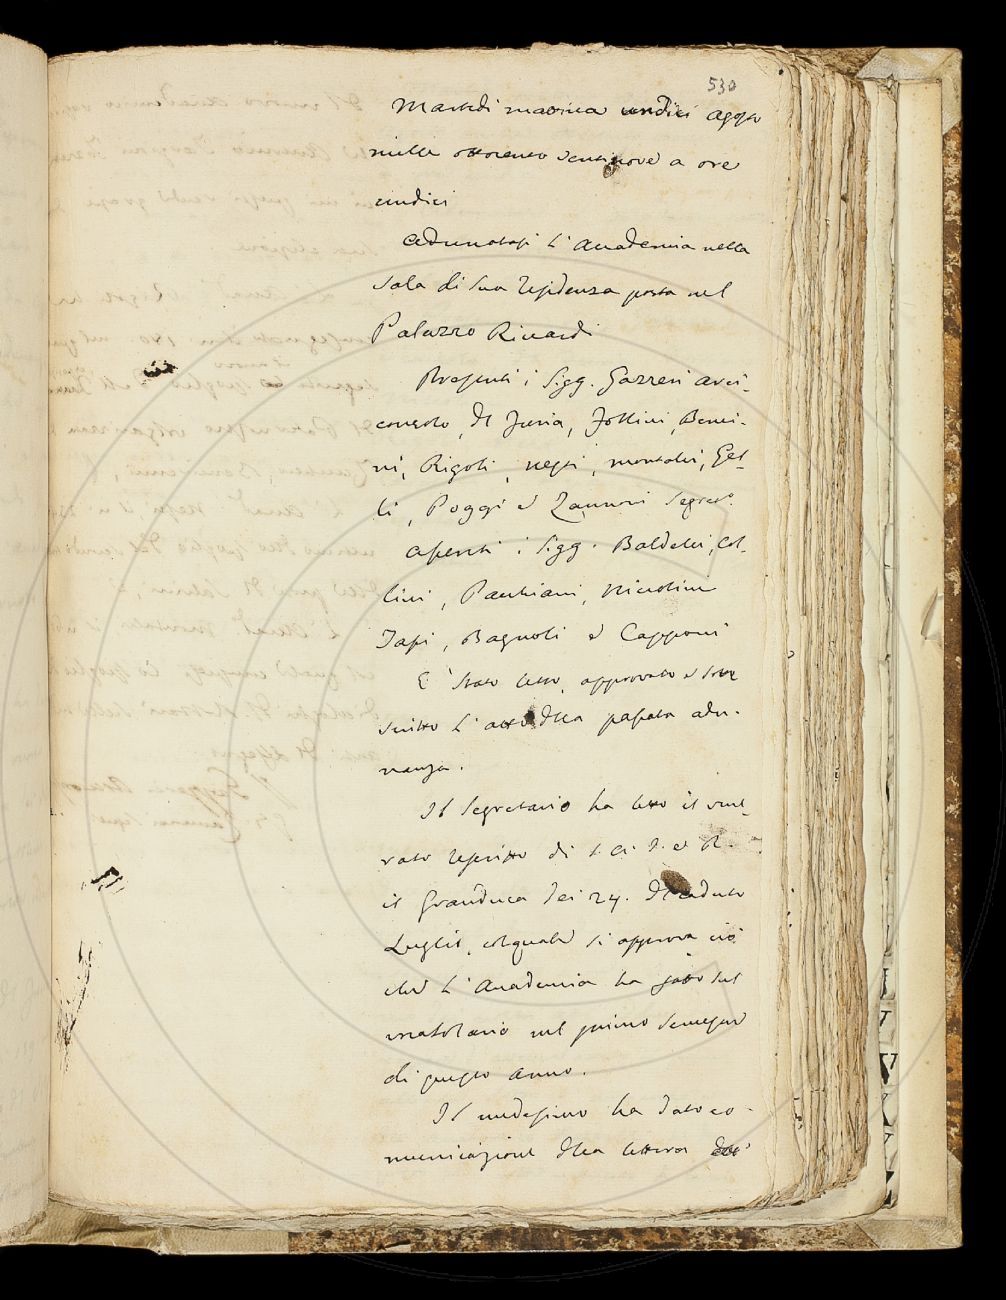 530
Martedì mattina undici Agosto
mille ottocento ventinove a ore
undici
Adunatasi l'Accademia nella
Sala di Sua residenza posta nel
Palazzo Riccardi
Presenti i Sigg. Gazzeri arci-
consolo, Del Furia, Follini, Benci-
ni, Rigoli, Nesti, Montalvi, Gel-
li, Poggi e Zannoni Segret.º
Assenti i Sigg. Baldelli, Col-
lini, Pacchiani, Niccolini
Tassi, Bagnoli e Capponi
È stato letto, approvato e sotto
scritto l'atto della passata adu-
nanza.
Il Segretario ha letto il vene-
rato rescritto di S. A. I. e R.
il Granduca dei 24. del caduto
Luglio, col quale si approva ciò
che l'Accademia ha fatto sul
vocabolario nel primo semestre
di questo anno.
Il medesimo ha dato co-
municazione della lettera